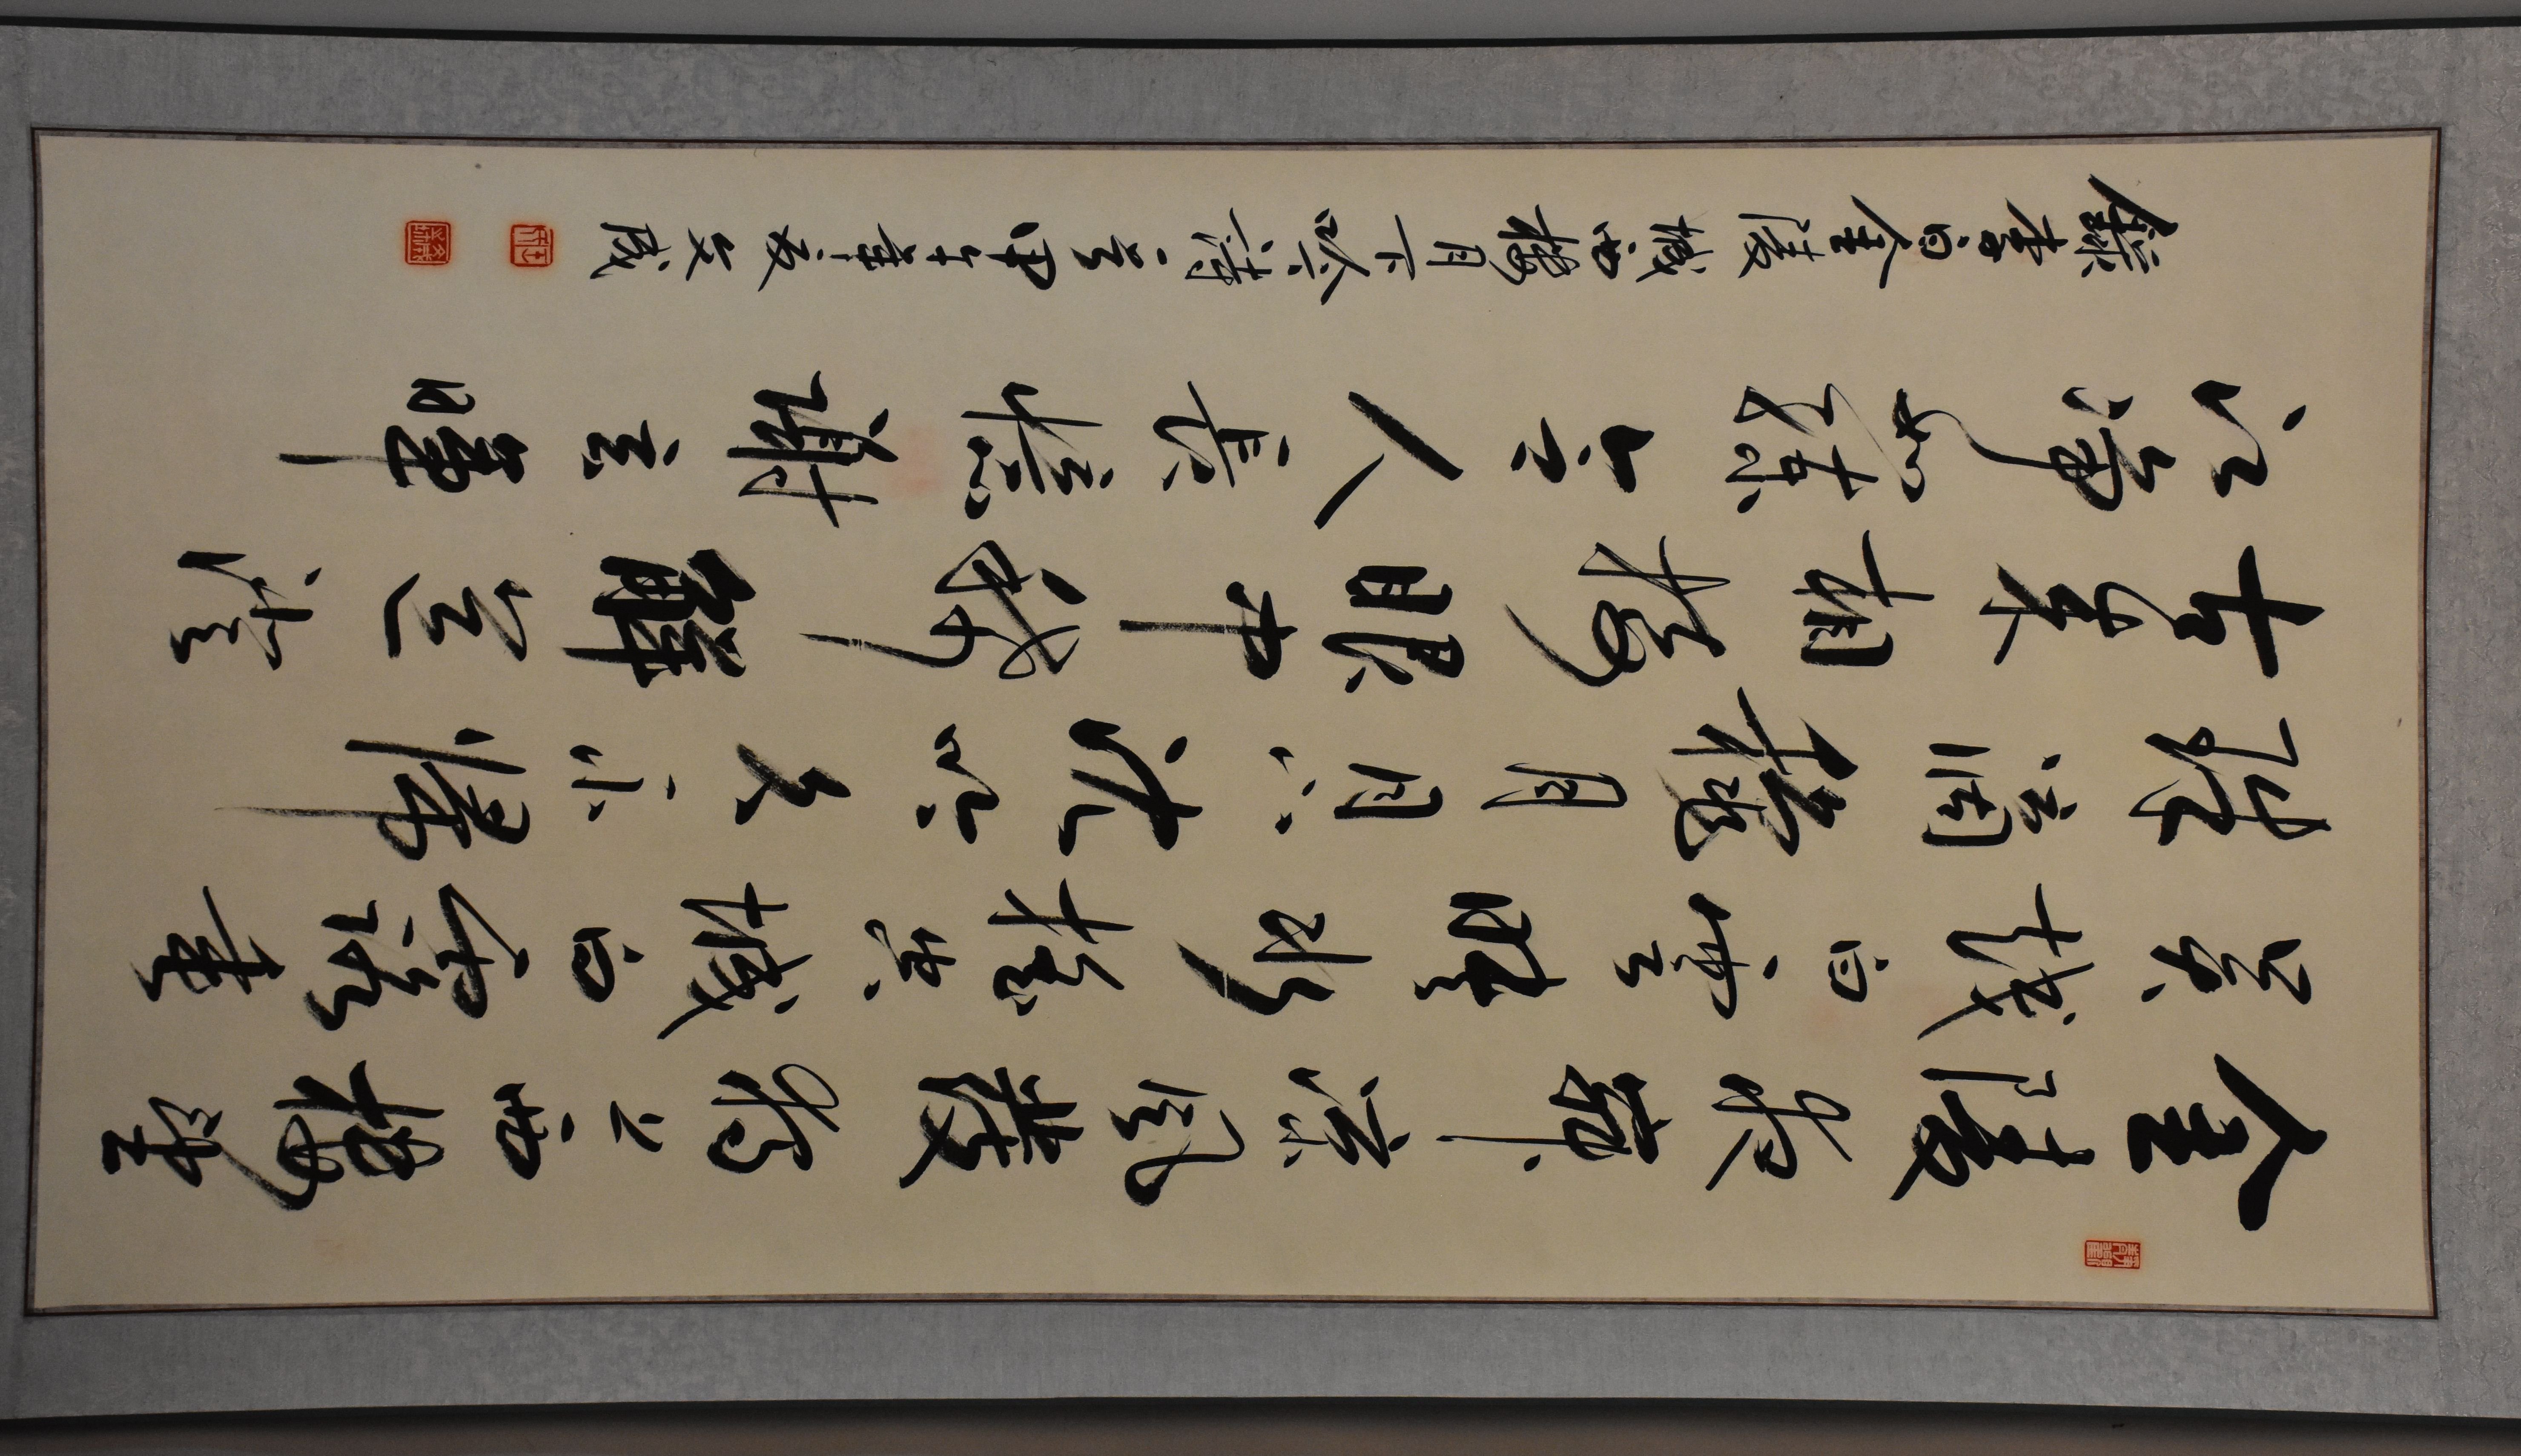 金陵夜寂涼風發獨上高樓望
吳越白雲映水搖空城白露垂
珠滴秋月月下沉吟久不歸
古來相接眼中稀解道澄
江淨如練令人長憶謝玄暉
錄李白金陵城西樓月下吟詩一首甲午年夏文成